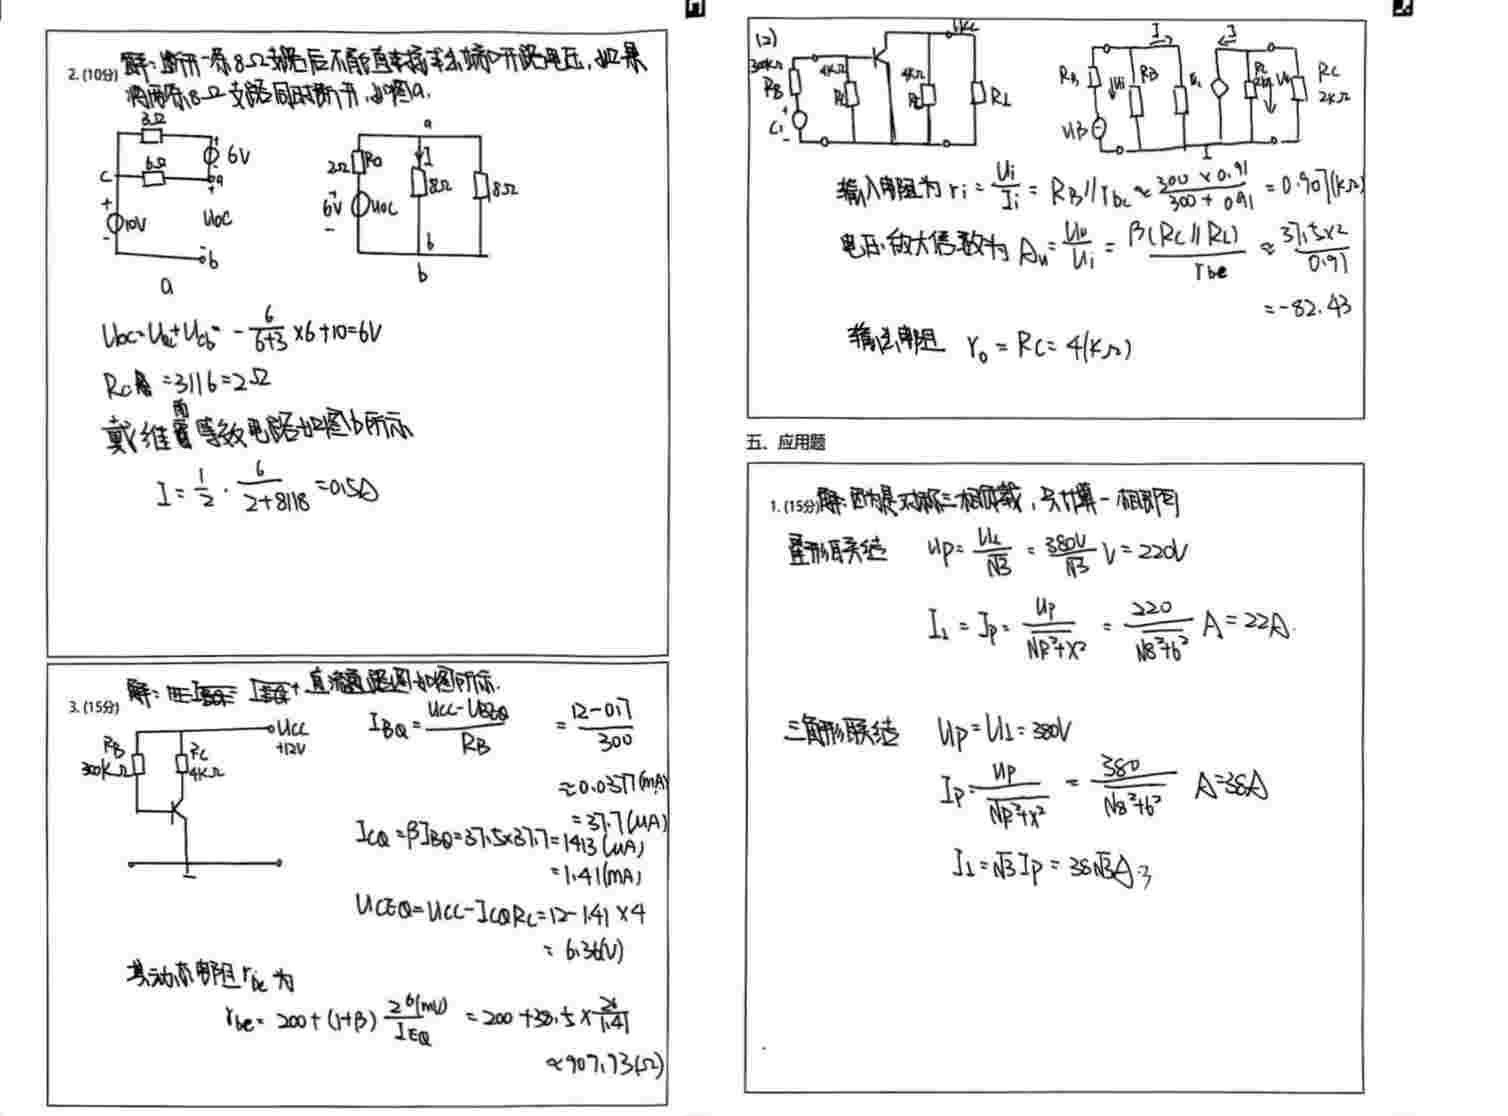 2. (10分) 解: 断开一条8Ω支路后不能直接求出端口开路电压, 如果
将两条8Ω支路同时断开, 如图a.
3Ω
6Ω
6V
c
a
+
10V
-
Uoc
b
a
a
2Ω
Ro
I
8Ω
8Ω
6V
Uoc
-
b
b
Uoc=Uac+Ucb= - 6/(6+3) ×6+10=6V
=3//6=2Ω
戴维南等效电路如图b所示
I = 1/2 · 6/(2+8//8) =0.5A
3. (15分) 解: 直流通路图如图所示.
RB
300KΩ
RC
4KΩ
UCC
+12V
IBQ = (UCC-UBEQ)/RB = (12-0.7)/300
≈0.0377(mA)
=37.7(uA)
ICQ=βIBQ=37.5×37.7=1413(uA)
=1.41(mA)
UCEQ=UCC-ICQRC=12-1.41×4
= 6.36(V)
其动态电阻rbe为
rbe= 200+(1+β) 26(mV)/IEQ =200+38.5× 26/1.41
≈907.73(Ω)
(2)
300KΩ
RB
4KΩ
4KΩ
RL
I
RB
Ui
RC
2KΩ
输入电阻为 ri= Ui/Ii = RB//rbe ≈ (300×0.91)/(300+0.91) =0.907(KΩ)
电压放大倍数为 Au= Uo/Ui = β(RC//RL)/rbe ≈ 37.5×2/0.91
=-82.43
输出电阻 ro=RC=4(KΩ)
五、应用题
1. (15分) 解: 因为是对称三相负载, 只计算一相即可
星形联结 UP= UL/√3 = 380V/√3 V=220V
I1 = IP= UP/√R²+X² = 220/√8²+6² A=22A.
三角形联结 UP=U1=380V
IP= UP/√R²+X² = 380/√8²+6² A=38A
I1=√3IP=38√3A